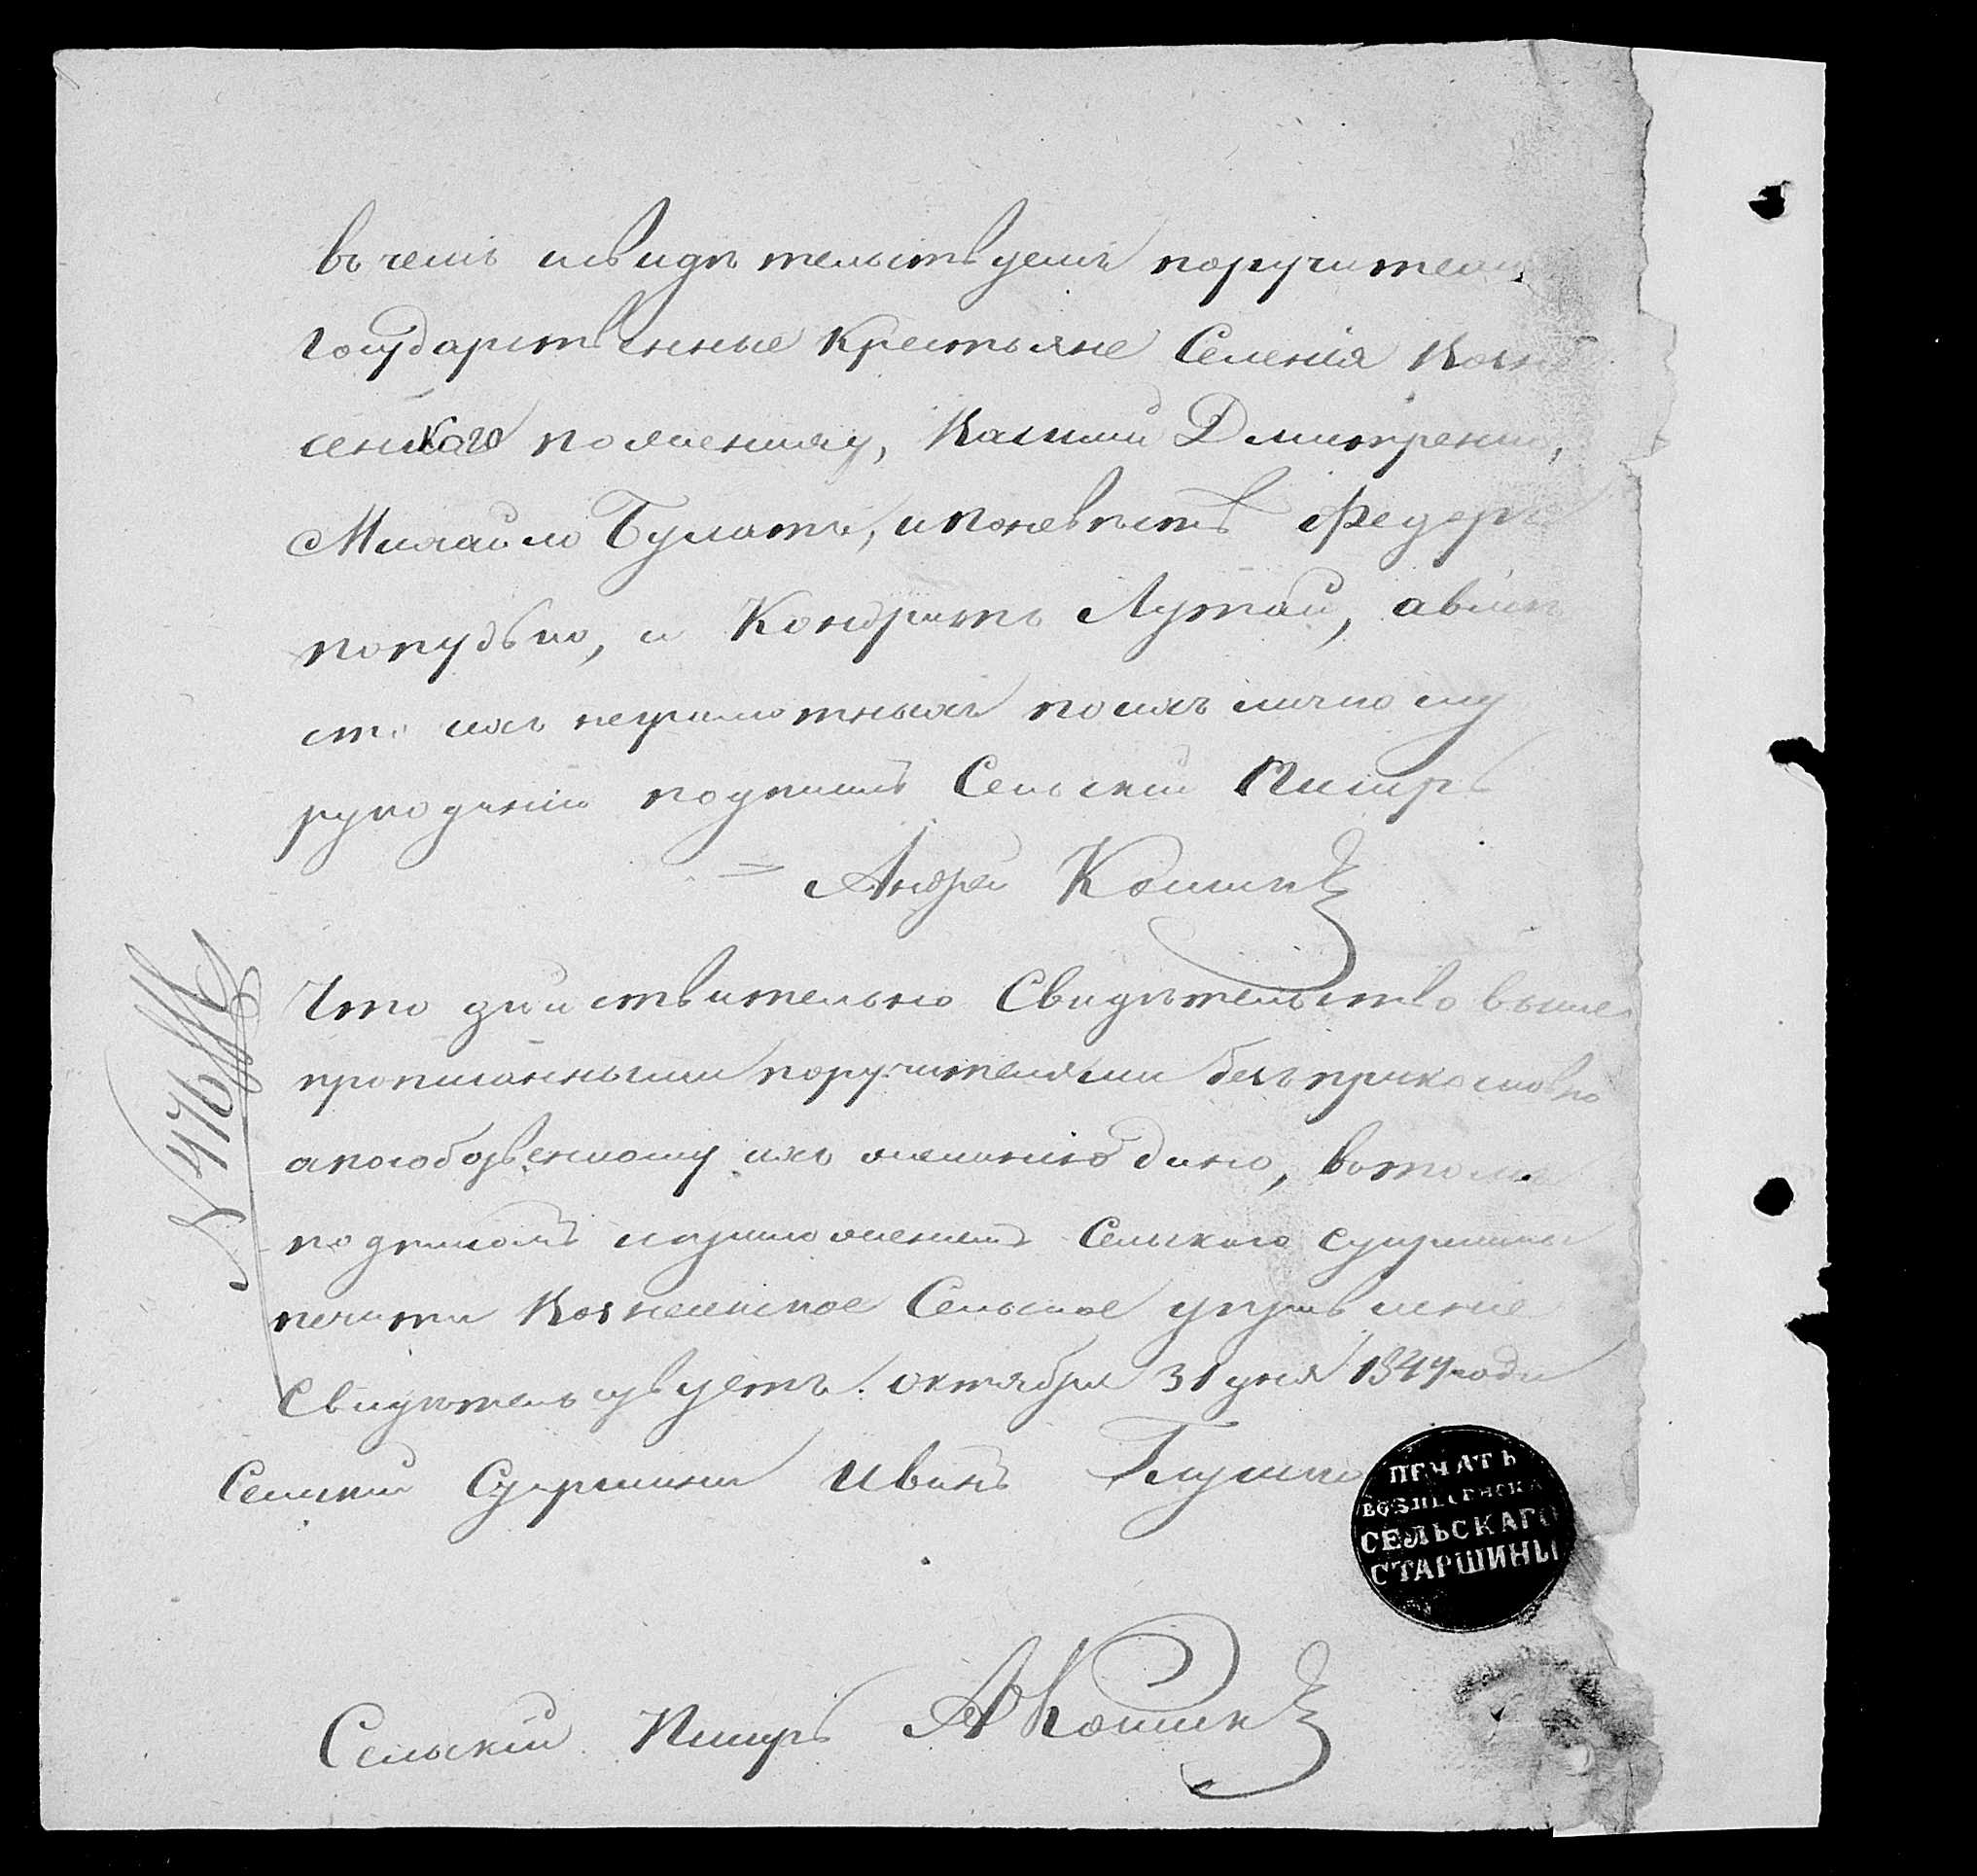 въ чемъ и свидѣтельствуемъ поручители
государственные крестьяне Селенія Возне
сенскаго помянемъ, Касьянъ Дмитренко,
Михайло Булатъ, и Федоръ
и Кондратъ Лутай, а вмѣ
сто ихъ неграмотныхъ по ихъ личному
рукоданію подписалъ Сельскій Писарь
Андрей Кошикъ
Что дѣйствительно Свидѣтельство выше
прописанными поручителями
а по собственному ихъ желанію дано, въ томъ
подписомъ и приложеніемъ Сельского старшины
печати Вознесенское Сельское управленіе
Свидѣтельствуетъ. октября 31 дня 1844 года
Сельскій Старшина Иванъ
ПЕЧАТЬ
ВОЗНЕСЕНСКА
СЕЛЬСКАГО
СТАРШИНЫ
Сельскій Писарь А Кошикъ
N 476